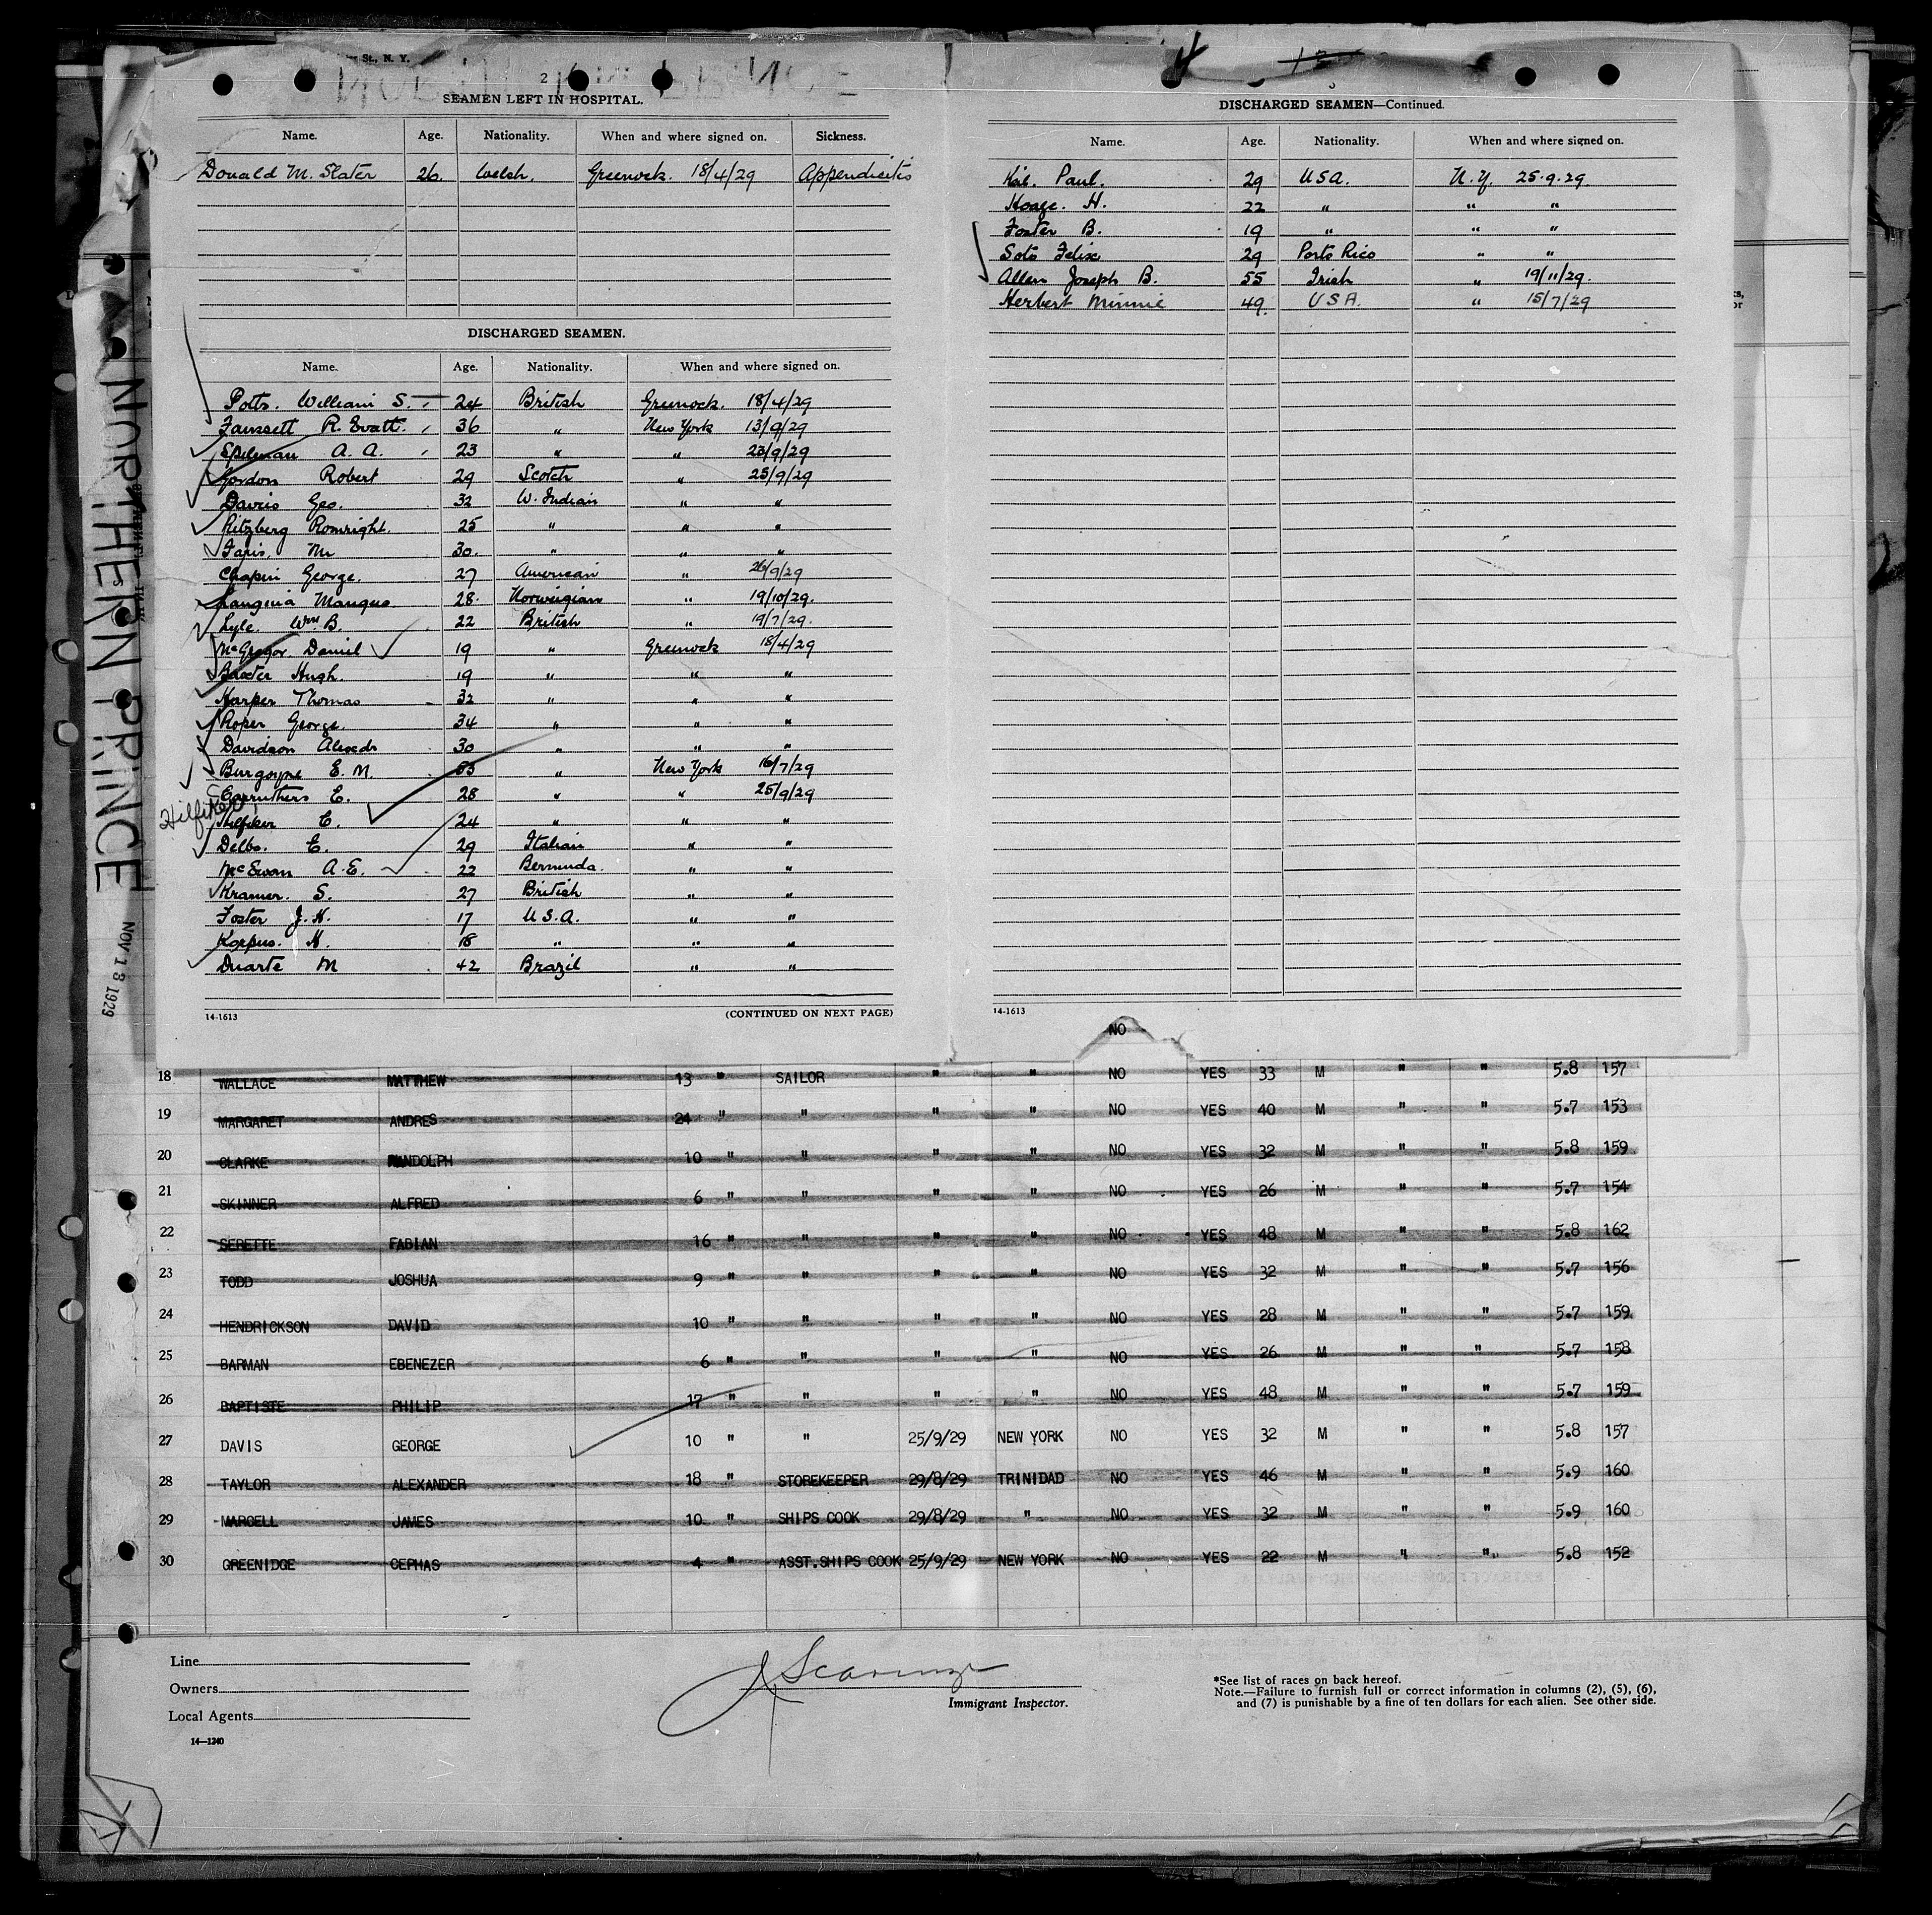 St., N. Y.
2
SEAMEN LEFT IN HOSPITAL.
Name. Age. Nationality. When and where signed on. Sickness.
Donald M. Slater 26. Welsh. Greenock. 18/4/29 Appendicitis
DISCHARGED SEAMEN.
Name. Age. Nationality. When and where signed on.
Potts. William S. 24 British Greenock. 18/4/29
Fawssett R. Evatt. 36 " New York 13/9/29
Spilman A. A. 23 " " 23/9/29
Gordon Robert 29 Scotch " 25/9/29
Davis Geo. 32 W. Indian " "
Ritzberg Romright. 25 " " "
Faris. M 30. " " "
Chapin George. 27 American " 26/9/29
Mangus 28. Norwegian " 19/10/29.
Lyle. Wm B. 22 British " 19/7/29.
McGregor Daniel 19 " Greenock 18/4/29
Baxter Hugh. 19 " " "
Harper Thomas 32 " " "
Roper George. 34 " " "
Davidson Alexdr 30 " " "
Burgoyne E. M. 63 " New York 16/7/29
Carruthers E. 28 " " 25/9/29
Hilfiker
Hilfiker C. 24 " " "
Delbo. E. 29 Italian " "
McEwan A. E. 22 Bermuda. " "
Kramer. S. 27 British " "
Foster J. H. 17 U.S.A. " "
Korpus. H. 18 " " "
Duarte M 42 Brazil " "
14-1613 (CONTINUED ON NEXT PAGE)
4 12
DISCHARGED SEAMEN—Continued.
Name. Age. Nationality. When and where signed on.
Paul. 29 USA. N.Y. 25.9.29.
Hoage. H. 22 " " "
Foster B. 19 " " "
Soto Felix 29 Porto Rico " "
Allen Joseph B. 55 Irish " 19/11/29.
Herbert Minnie 49. USA. " 15/7/29
14-1613
NORTHERN PRINCE
NOV 13 1929
NO
18 WALLACE MATTHEW 13 " SAILOR " " NO YES 33 M " " 5.8 157
19 MARGARET ANDRES 24 " " " " NO YES 40 M " " 5.7 153
20 CLARKE RANDOLPH 10 " " " " NO YES 32 M " " 5.8 159
21 SKINNER ALFRED 6 " " " " NO YES 26 M " " 5.7 154
22 SERETTE FABIAN 16 " " " " NO YES 48 M " " 5.8 162
23 TODD JOSHUA 9 " " " " NO YES 32 M " " 5.7 156
24 HENDRICKSON DAVID 10 " " " " NO YES 28 M " " 5.7 159
25 BARMAN EBENEZER 6 " " " " NO YES 26 M " " 5.7 158
26 BAPTISTE PHILIP 17 " " " " NO YES 48 M " " 5.7 159
27 DAVIS GEORGE 10 " " 25/9/29 NEW YORK NO YES 32 M " " 5.8 157
28 TAYLOR ALEXANDER 18 " STOREKEEPER 29/8/29 TRINIDAD NO YES 46 M " " 5.9 160
29 MARCELL JAMES 10 " SHIPS COOK 29/8/29 " NO YES 32 M " " 5.9 160
30 GREENIDGE CEPHAS 4 " ASST.SHIPS COOK 25/9/29 NEW YORK NO YES 22 M " " 5.8 152
Line
Owners
Local Agents
14—1240
Immigrant Inspector.
*See list of races on back hereof.
Note.—Failure to furnish full or correct information in columns (2), (5), (6),
and (7) is punishable by a fine of ten dollars for each alien. See other side.